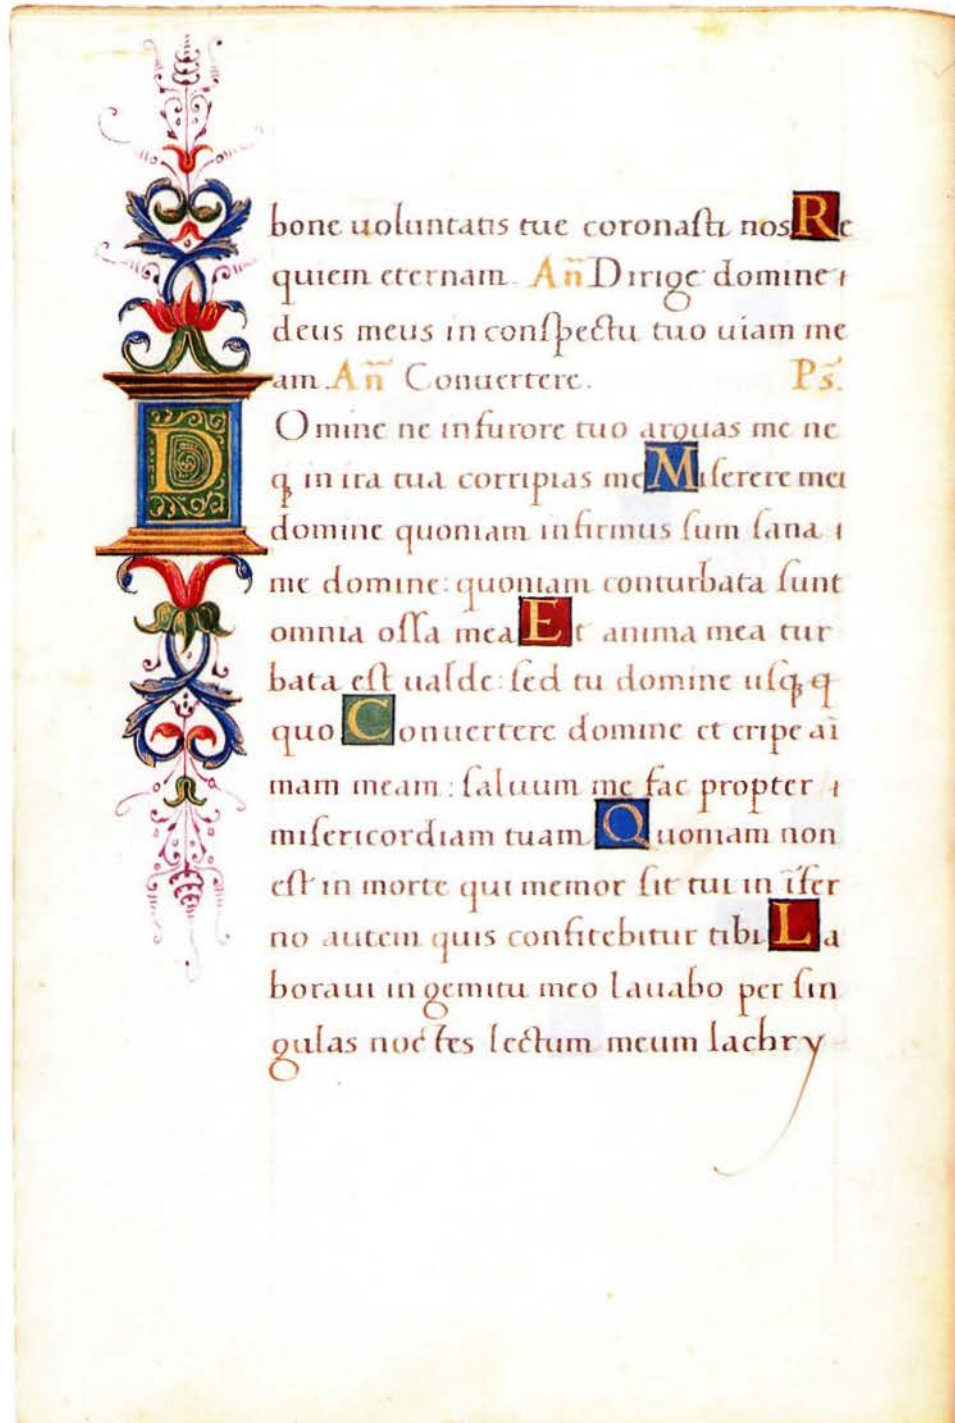 bone uoluntatis tue coronasti nos Re
quiem eternam. Añ Dirige domine
deus meus in conspectu tuo uiam me
am. Añ Conuertere. Ps̃.
DOmine ne in furore tuo arguas me ne
qꝫ in ira tua corripias me Miserere mei
domine quoniam infirmus sum sana
me domine: quoniam conturbata sunt
omnia ossa mea Et anima mea tur
bata est ualde: sed tu domine usqꝫ q
quo Conuertere domine et eripe aĩ
mam meam: saluum me fac propter
misericordiam tuam Quoniam non
est in morte qui memor sit tui in ĩfer
no autem quis confitebitur tibi La
boraui in gemitu meo lauabo per sin
gulas noctes lectum meum lachry